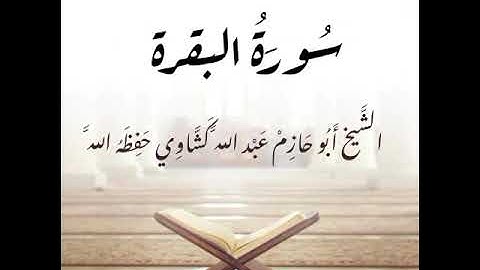 سُورَةُ البقرة
الشَّيخ أَبُو حَازِمْ عَبْد اللَّه كَشَّاوِي حَفِظَهُ اللَّه